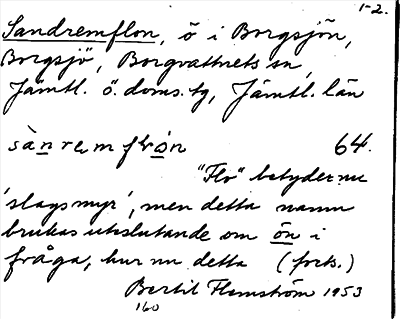 1-2.
Sandremflon, ö i Borgsjön,
Borgsjö, Borgvattnets sn,
Jämtl. ö. doms.tg, Jämtl. län
64.
"Flo" betyder nu
'slagsmyr', men detta namn
brukas uteslutande om ön i
fråga, hur nu detta (forts.)
Bertil Flemström 1953
160